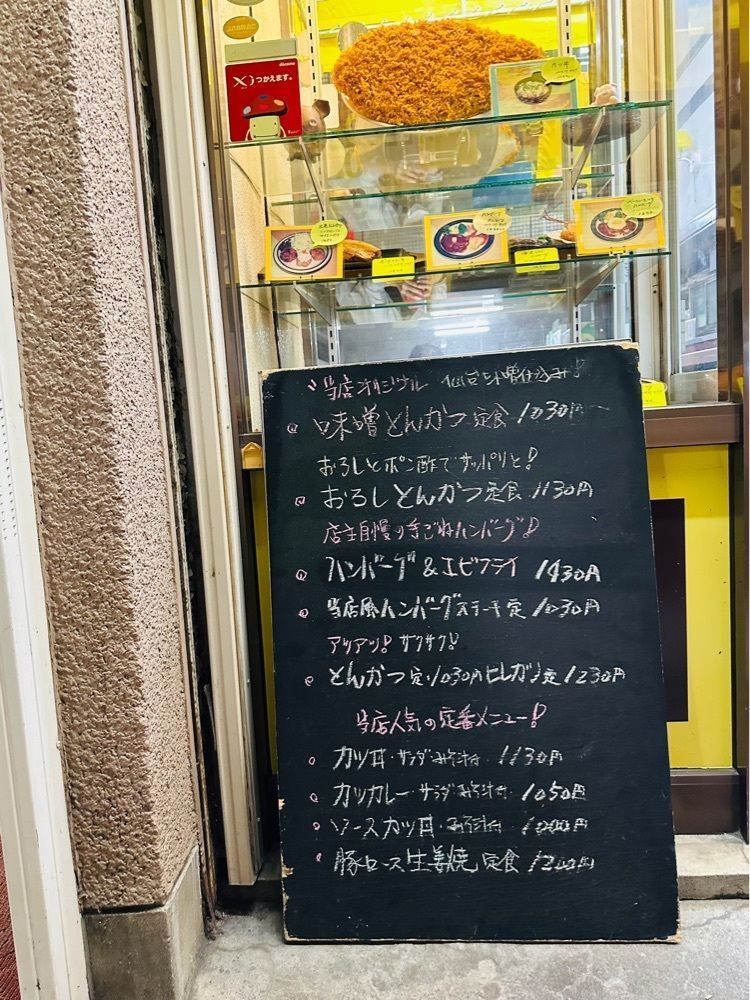 docomo
iDつかえます。
カツ丼
当店オリジナル 仙台味噌仕込み♪
味噌とんかつ定食 1030円
おろしとポン酢でサッパリと!
おろしとんかつ定食 1130円
店主自慢の手ごねハンバーグ!
ハンバーグ&エビフライ 1430円
当店風ハンバーグステーキ定 1030円
アツアツ! サクサク!
とんかつ定・1030円 ヒレカツ定 1230円
当店人気の定番メニュー!
カツ丼・サラダみそ汁付 1130円
カツカレー・サラダみそ汁付 1050円
ソースカツ丼・みそ汁付 1000円
豚ロース生姜焼 定食 1200円